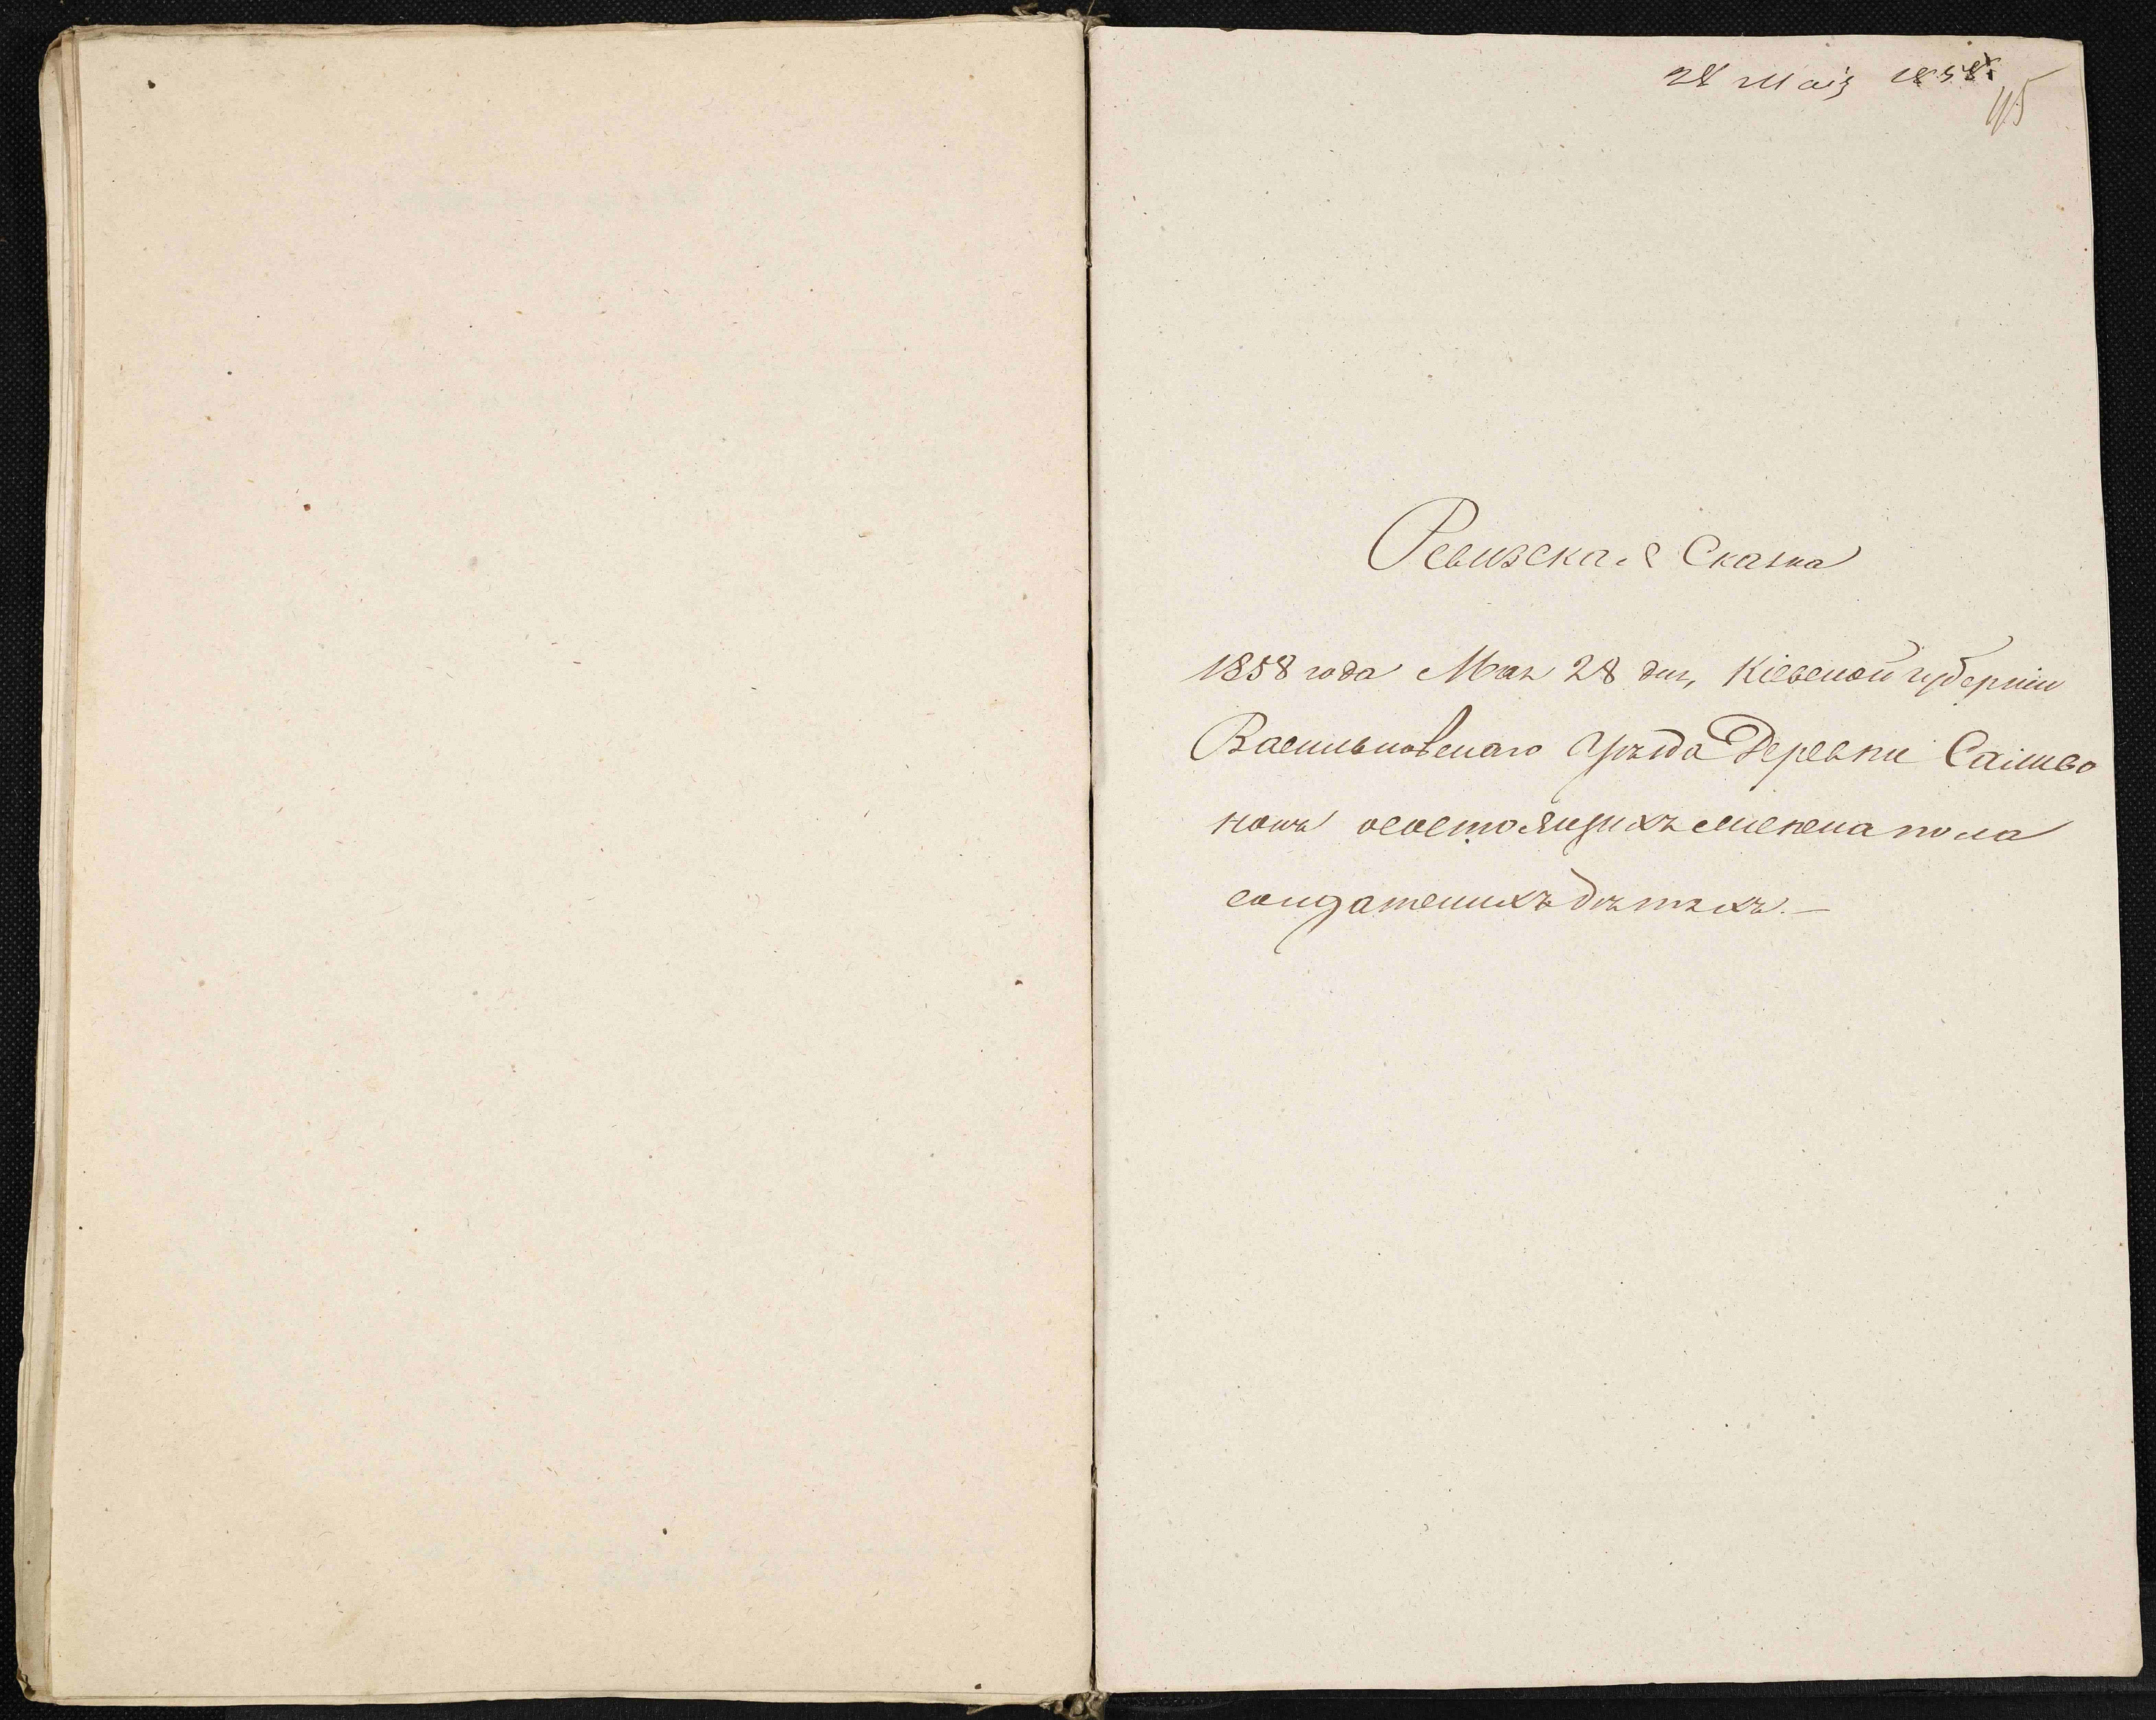 28 Маія 1858
115
Ревизская Сказка
1858 года Мая 28 дня, Кіевской губерніи
Васильковскаго уѣзда Деревни Саливо
нокъ о состоящихъ мужска пола
солдатскихъ дѣтяхъ.—